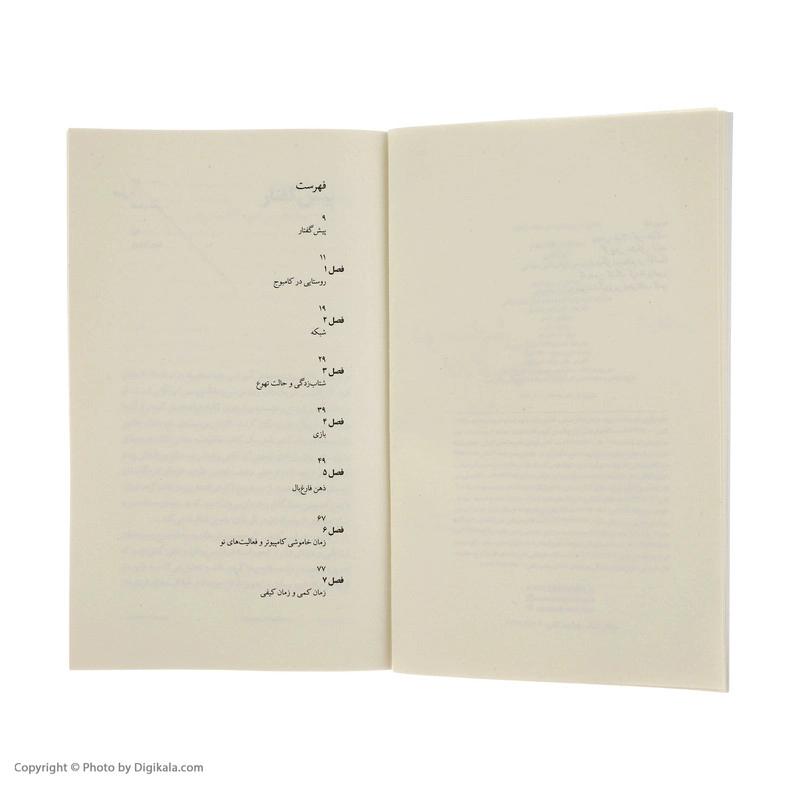 فهرست
۹
پیش‌گفتار
۱۱
فصل ۱
روستایی در کامبوج
۱۹
فصل ۲
شبکه
۲۹
فصل ۳
شتاب‌زدگی و حالت تهوع
۳۹
فصل ۴
بازی
۴۹
فصل ۵
ذهن فارغ‌بال
۶۷
فصل ۶
زمان خاموشی کامپیوتر و فعالیت‌های نو
۷۷
فصل ۷
زمان کمی و زمان کیفی
Copyright © Photo by Digikala.com